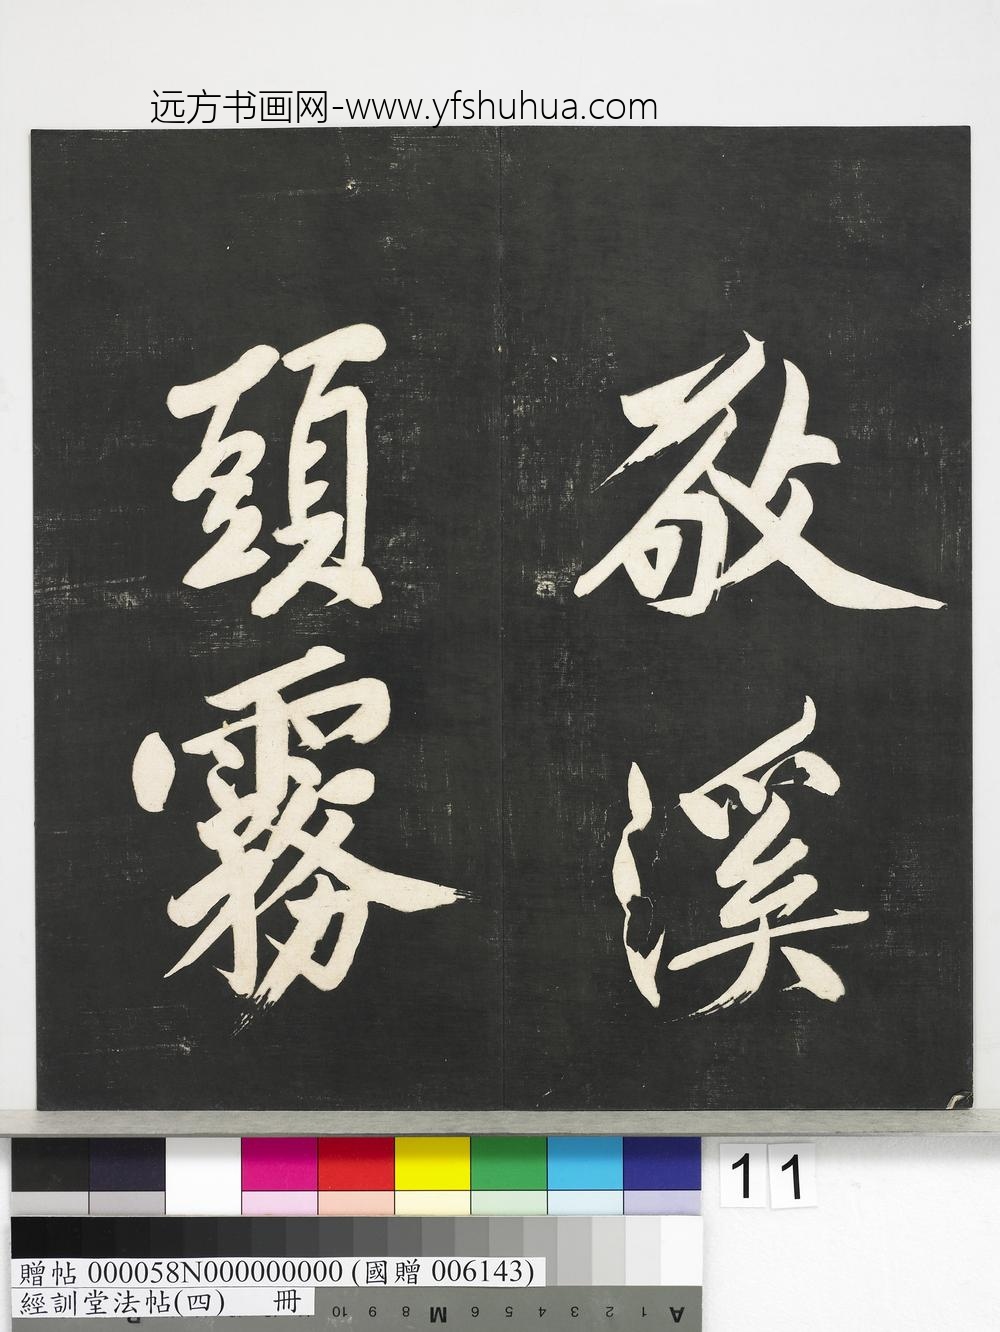 远方书画网-www.yfshuhua.com
敬溪
頭霧
11
贈帖 000058N000000000 (國贈 006143)
經訓堂法帖(四) 冊
A 1 2 3 4 5 6 M 8 9 10